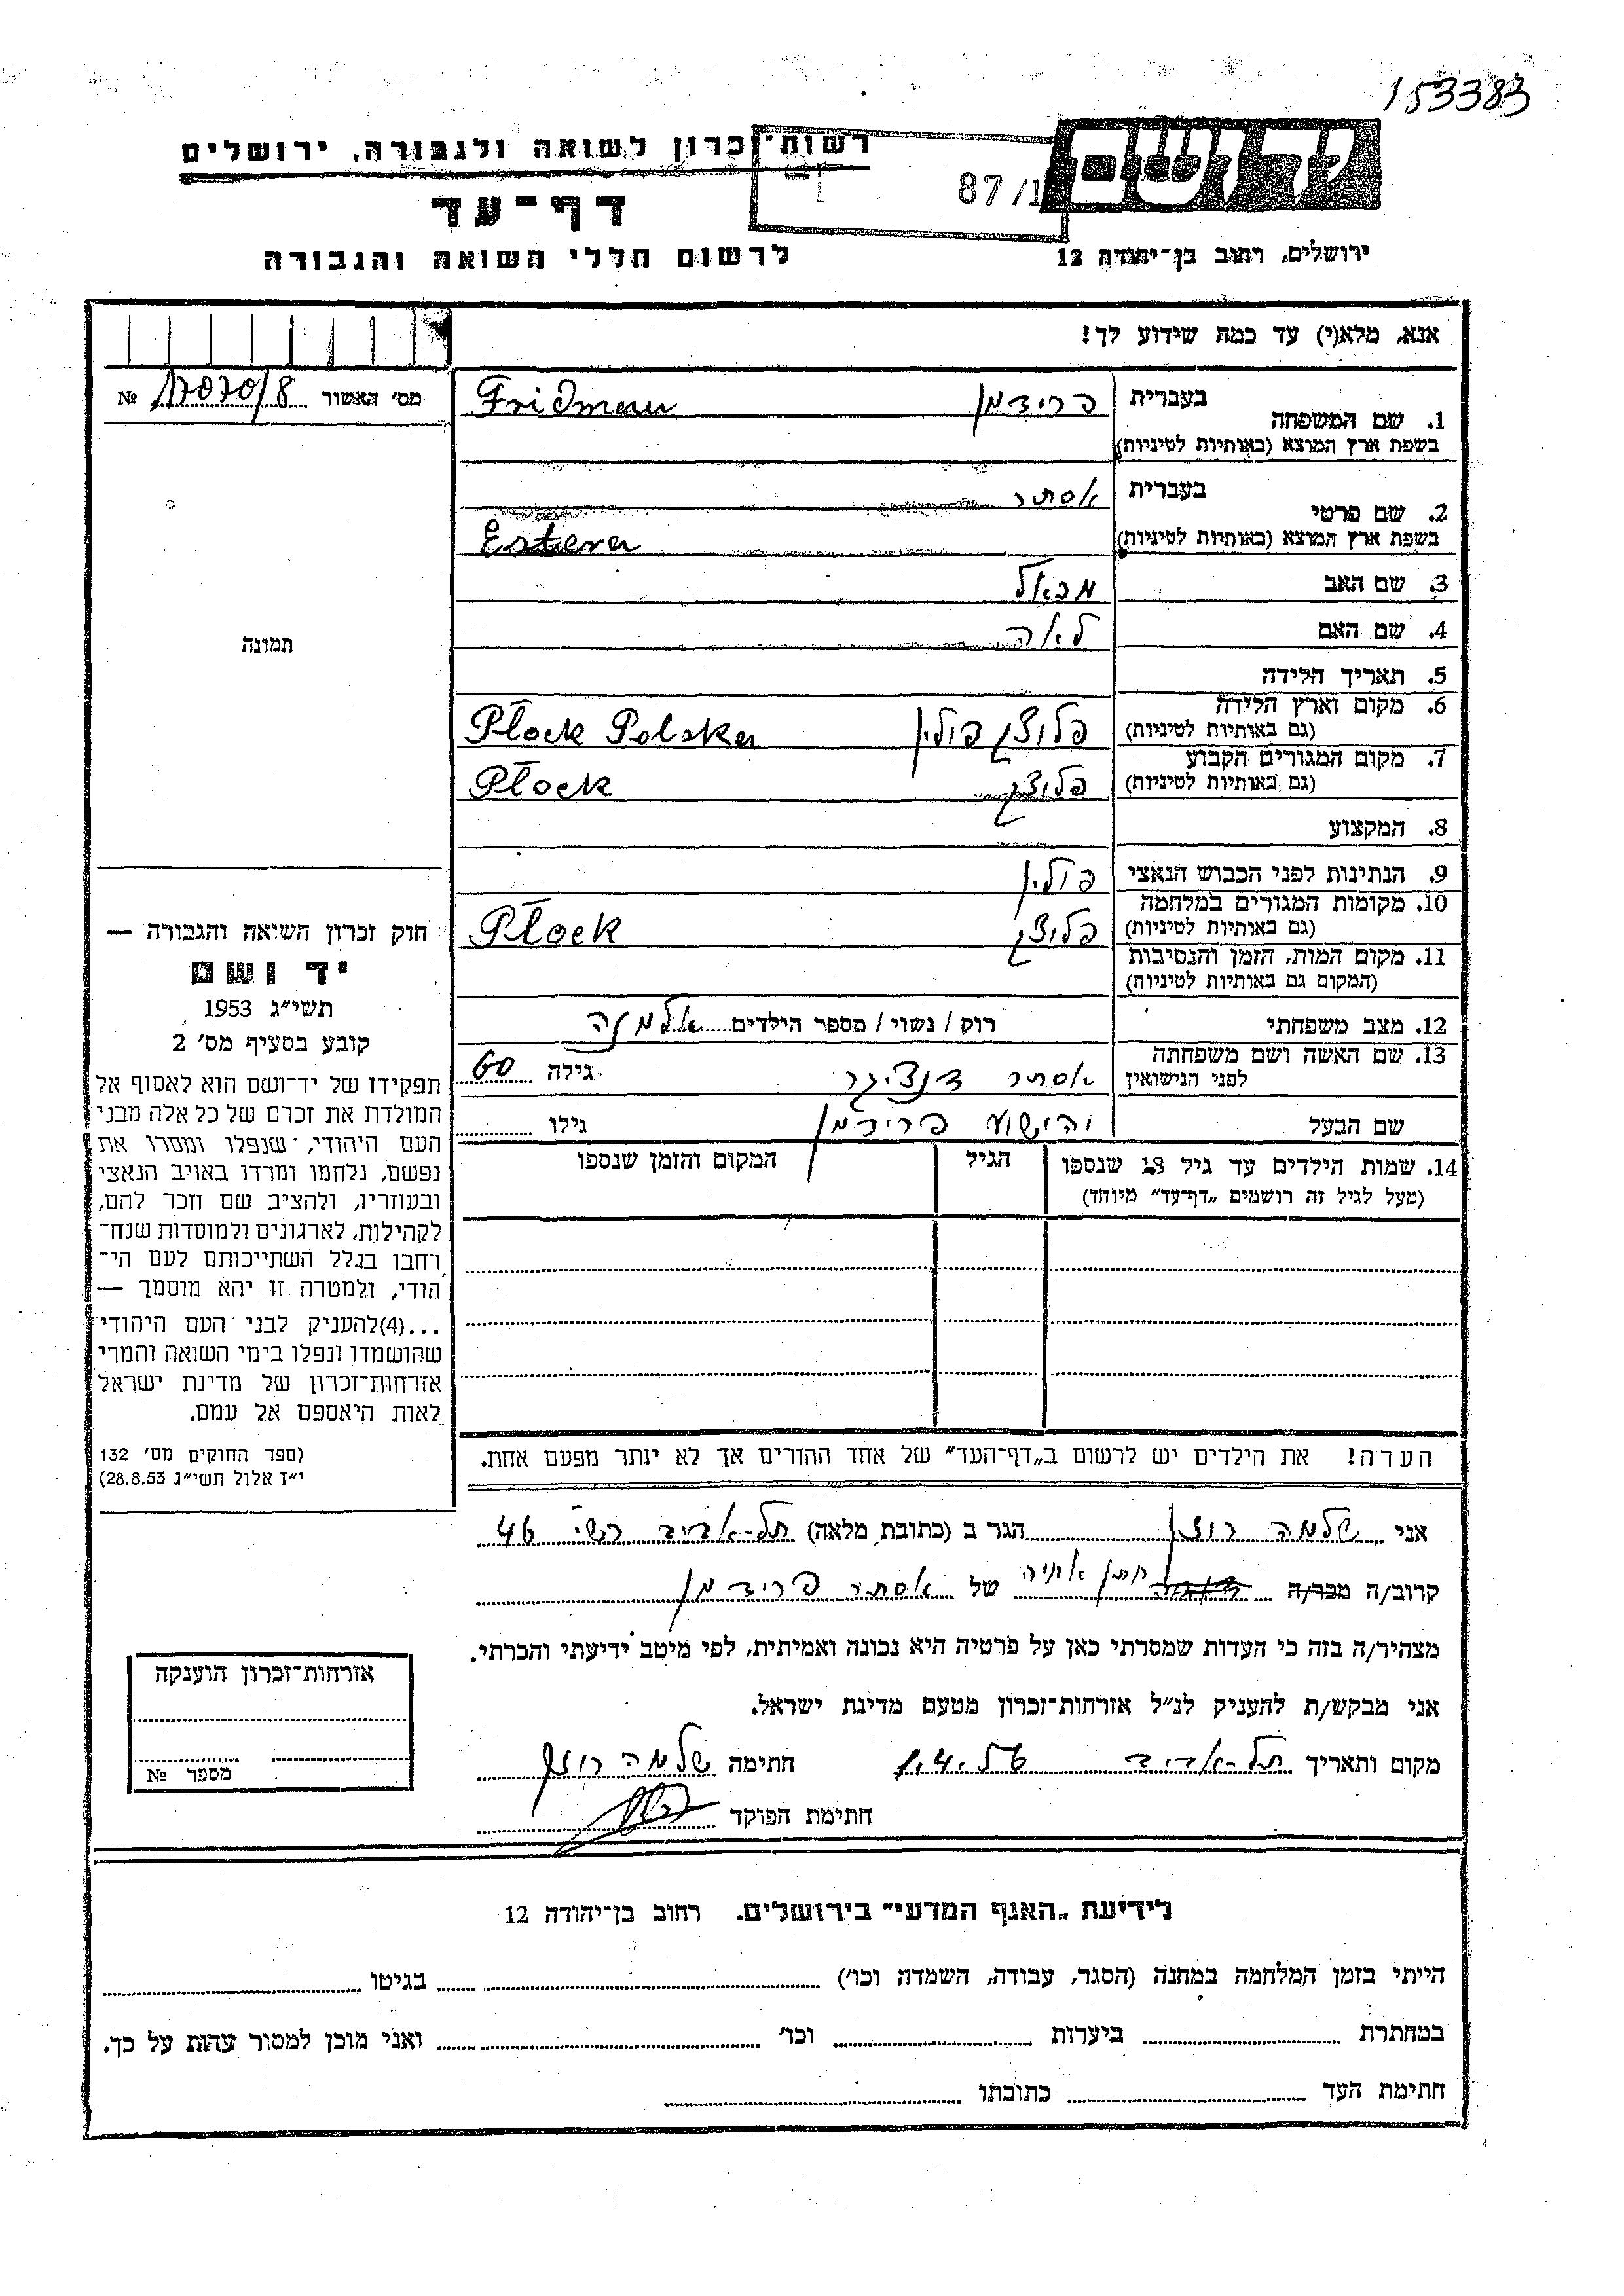 153383
רשות־זכרון לשואה ולגבורה, ירושלים
דף־עד
לרשום חללי השואה והגבורה
87/1
יד ושם
ירושלים, רחוב בן־יהודה 12
אנא, מלא(י) עד כמה שידוע לך!
מס׳ האשור 17070/8 №
1. שם המשפחה
בעברית פרידמן Fridman
בשפת ארץ המוצא (באותיות לטיניות)
2. שם פרטי
בעברית אסתר
בשפת ארץ המוצא (באותיות לטיניות) Estera
3. שם האב מכאל
4. שם האם לאה
5. תאריך הלידה
6. מקום וארץ הלידה
(גם באותיות לטיניות) פלוצק פולין Płock Polska
7. מקום המגורים הקבוע
(גם באותיות לטיניות) פלוצק Płock
8. המקצוע
9. הנתינות לפני הכבוש הנאצי פולין
10. מקומות המגורים במלחמה
(גם באותיות לטיניות) פלוצק Płock
11. מקום המות, הזמן והנסיבות
(המקום גם באותיות לטיניות)
12. מצב משפחתי רוק / נשוי / מספר הילדים אלמנה
13. שם האשה ושם משפחתה
לפני הנישואין אסתר דנציגר גילה 60
שם הבעל יהושע פרידמן גילו
14. שמות הילדים עד גיל 18 שנספו הגיל המקום והזמן שנספו
(מעל לגיל זה רושמים „דף־עד״ מיוחד)
תמונה
חוק זכרון השואה והגבורה —
יד ושם
תשי״ג 1953
קובע בסעיף מס׳ 2
תפקידו של יד־ושם הוא לאסוף אל
המולדת את זכרם של כל אלה מבני
העם היהודי, שנפלו ומסרו את
נפשם, נלחמו ומרדו באויב הנאצי
ובעוזריו, ולהציב שם וזכר להם,
לקהילות, לארגונים ולמוסדות שנח־
רחבו בגלל השתייכותם לעם הי־
הודי, ולמטרה זו יהא מוסמך —
...(4) להעניק לבני העם היהודי
שהושמדו ונפלו בימי השואה והמרי
אזרחות־זכרון של מדינת ישראל
לאות היאספם אל עמם.
(ספר החוקים מס׳ 132
י״ז אלול תשי״ג 28.8.53)
הערה! את הילדים יש לרשום ב„דף־העד״ של אחד ההורים אך לא יותר מפעם אחת.
אני שלמה רוצק הגר ב (כתובת מלאה) תל-אביב רשי 46
קרוב/ה מכר/ה חתן אחיה של אסתר פרידמן
מצהיר/ה בזה כי העדות שמסרתי כאן על פרטיה היא נכונה ואמיתית, לפי מיטב ידיעתי והכרתי.
אני מבקש/ת להעניק לנ״ל אזרחות־זכרון מטעם מדינת ישראל.
מקום ותאריך תל-אביב 1.4.56 חתימה שלמה רוצק
חתימת הפוקד
אזרחות־זכרון הוענקה
מספר №
לידיעת „האגף המדעי״ בירושלים. רחוב בן־יהודה 12
הייתי בזמן המלחמה במחנה (הסגר, עבודה, השמדה וכו׳) בגיטו
במחתרת ביערות וכו׳ ואני מוכן למסור עדות על כך.
חתימת העד כתובתו